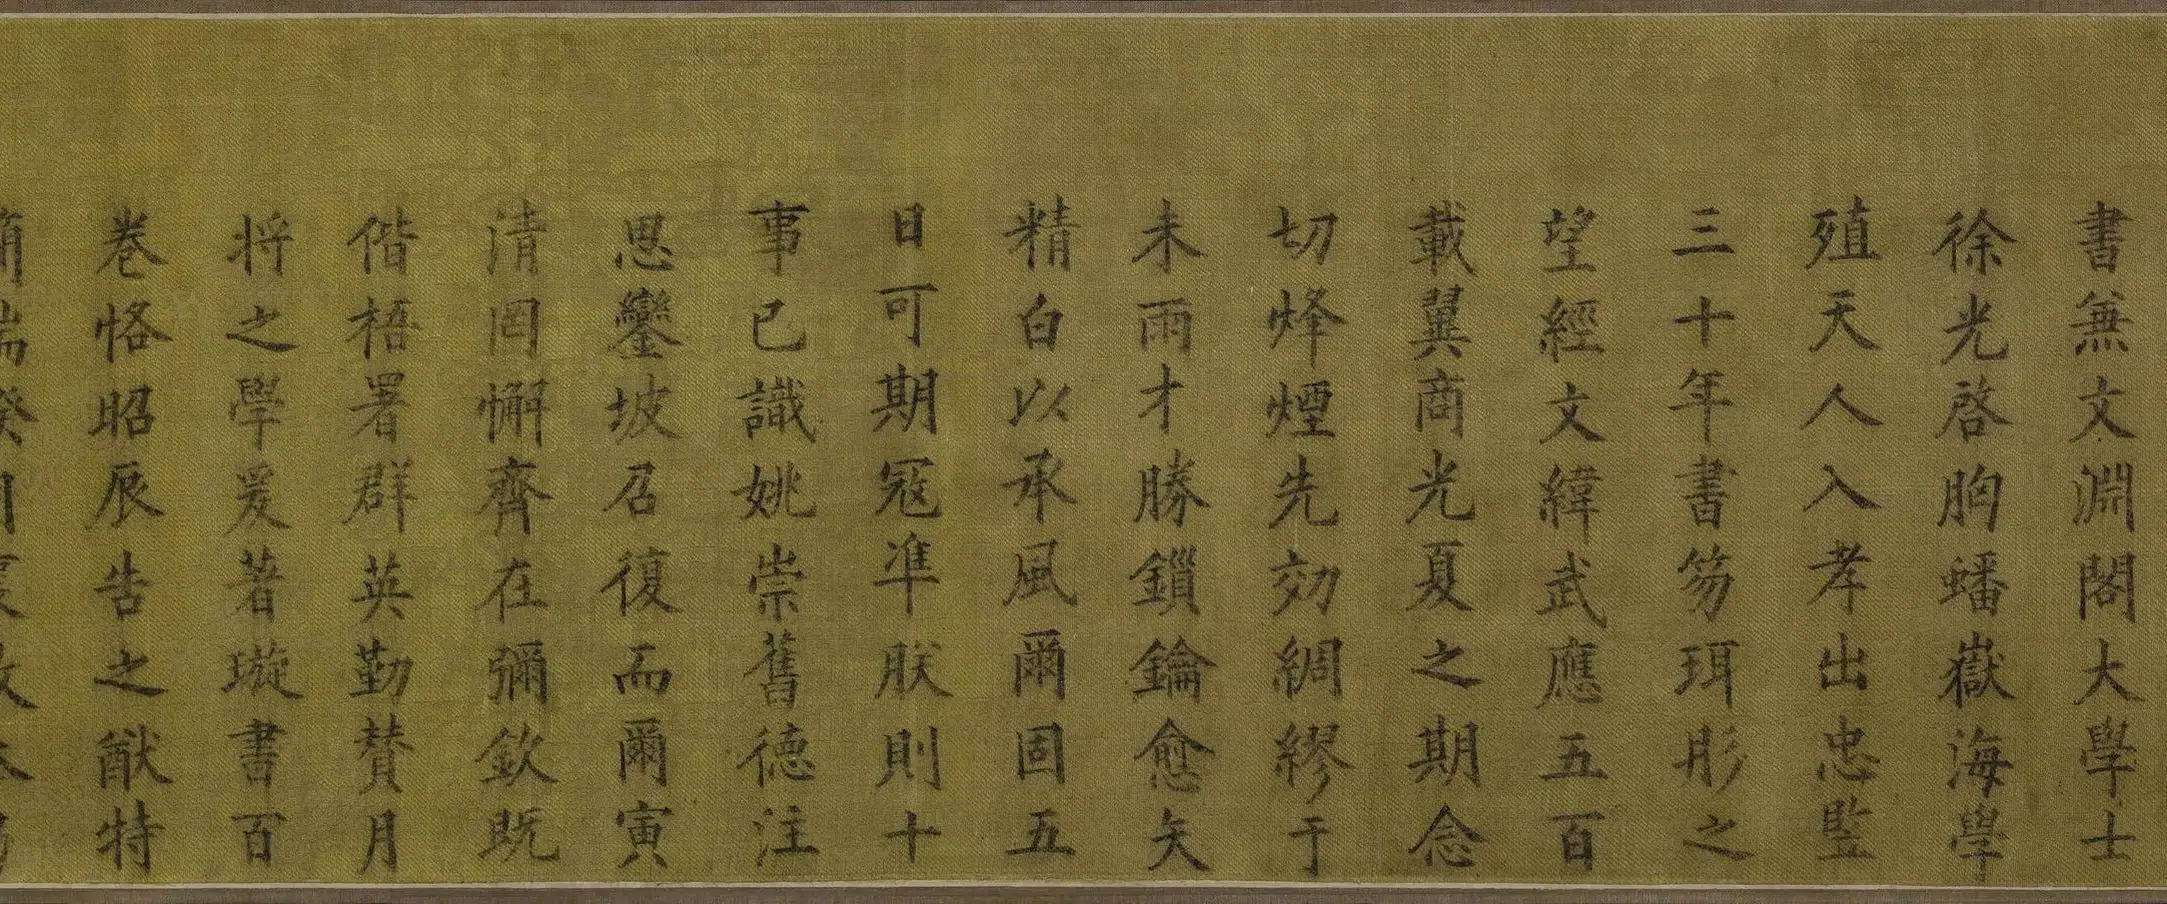 書兼文淵閣大學士
徐光啓胸蟠嶽海學
殖天人入孝出忠監
三十年書笏珥彤之
望經文緯武應五百
載翼商光夏之期念
切烽煙先効綢繆于
未雨才勝鎖鑰愈矢
精白以承風爾固五
日可期冦準朕則十
事已識姚崇舊德注
思鑾坡召復而爾寅
清罔懈齊在彌欽既
偕梧署群英勤賛月
将之學爰著璇書百
卷恪昭辰告之猷特